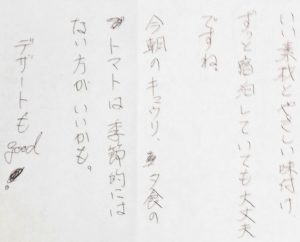 いい素材とやさしい味付け
ずっと宿泊していても大丈夫
ですね。
今朝のキュウリ、夕食の
トマトは季節的には
ない方がいいかも。
デザートもgood